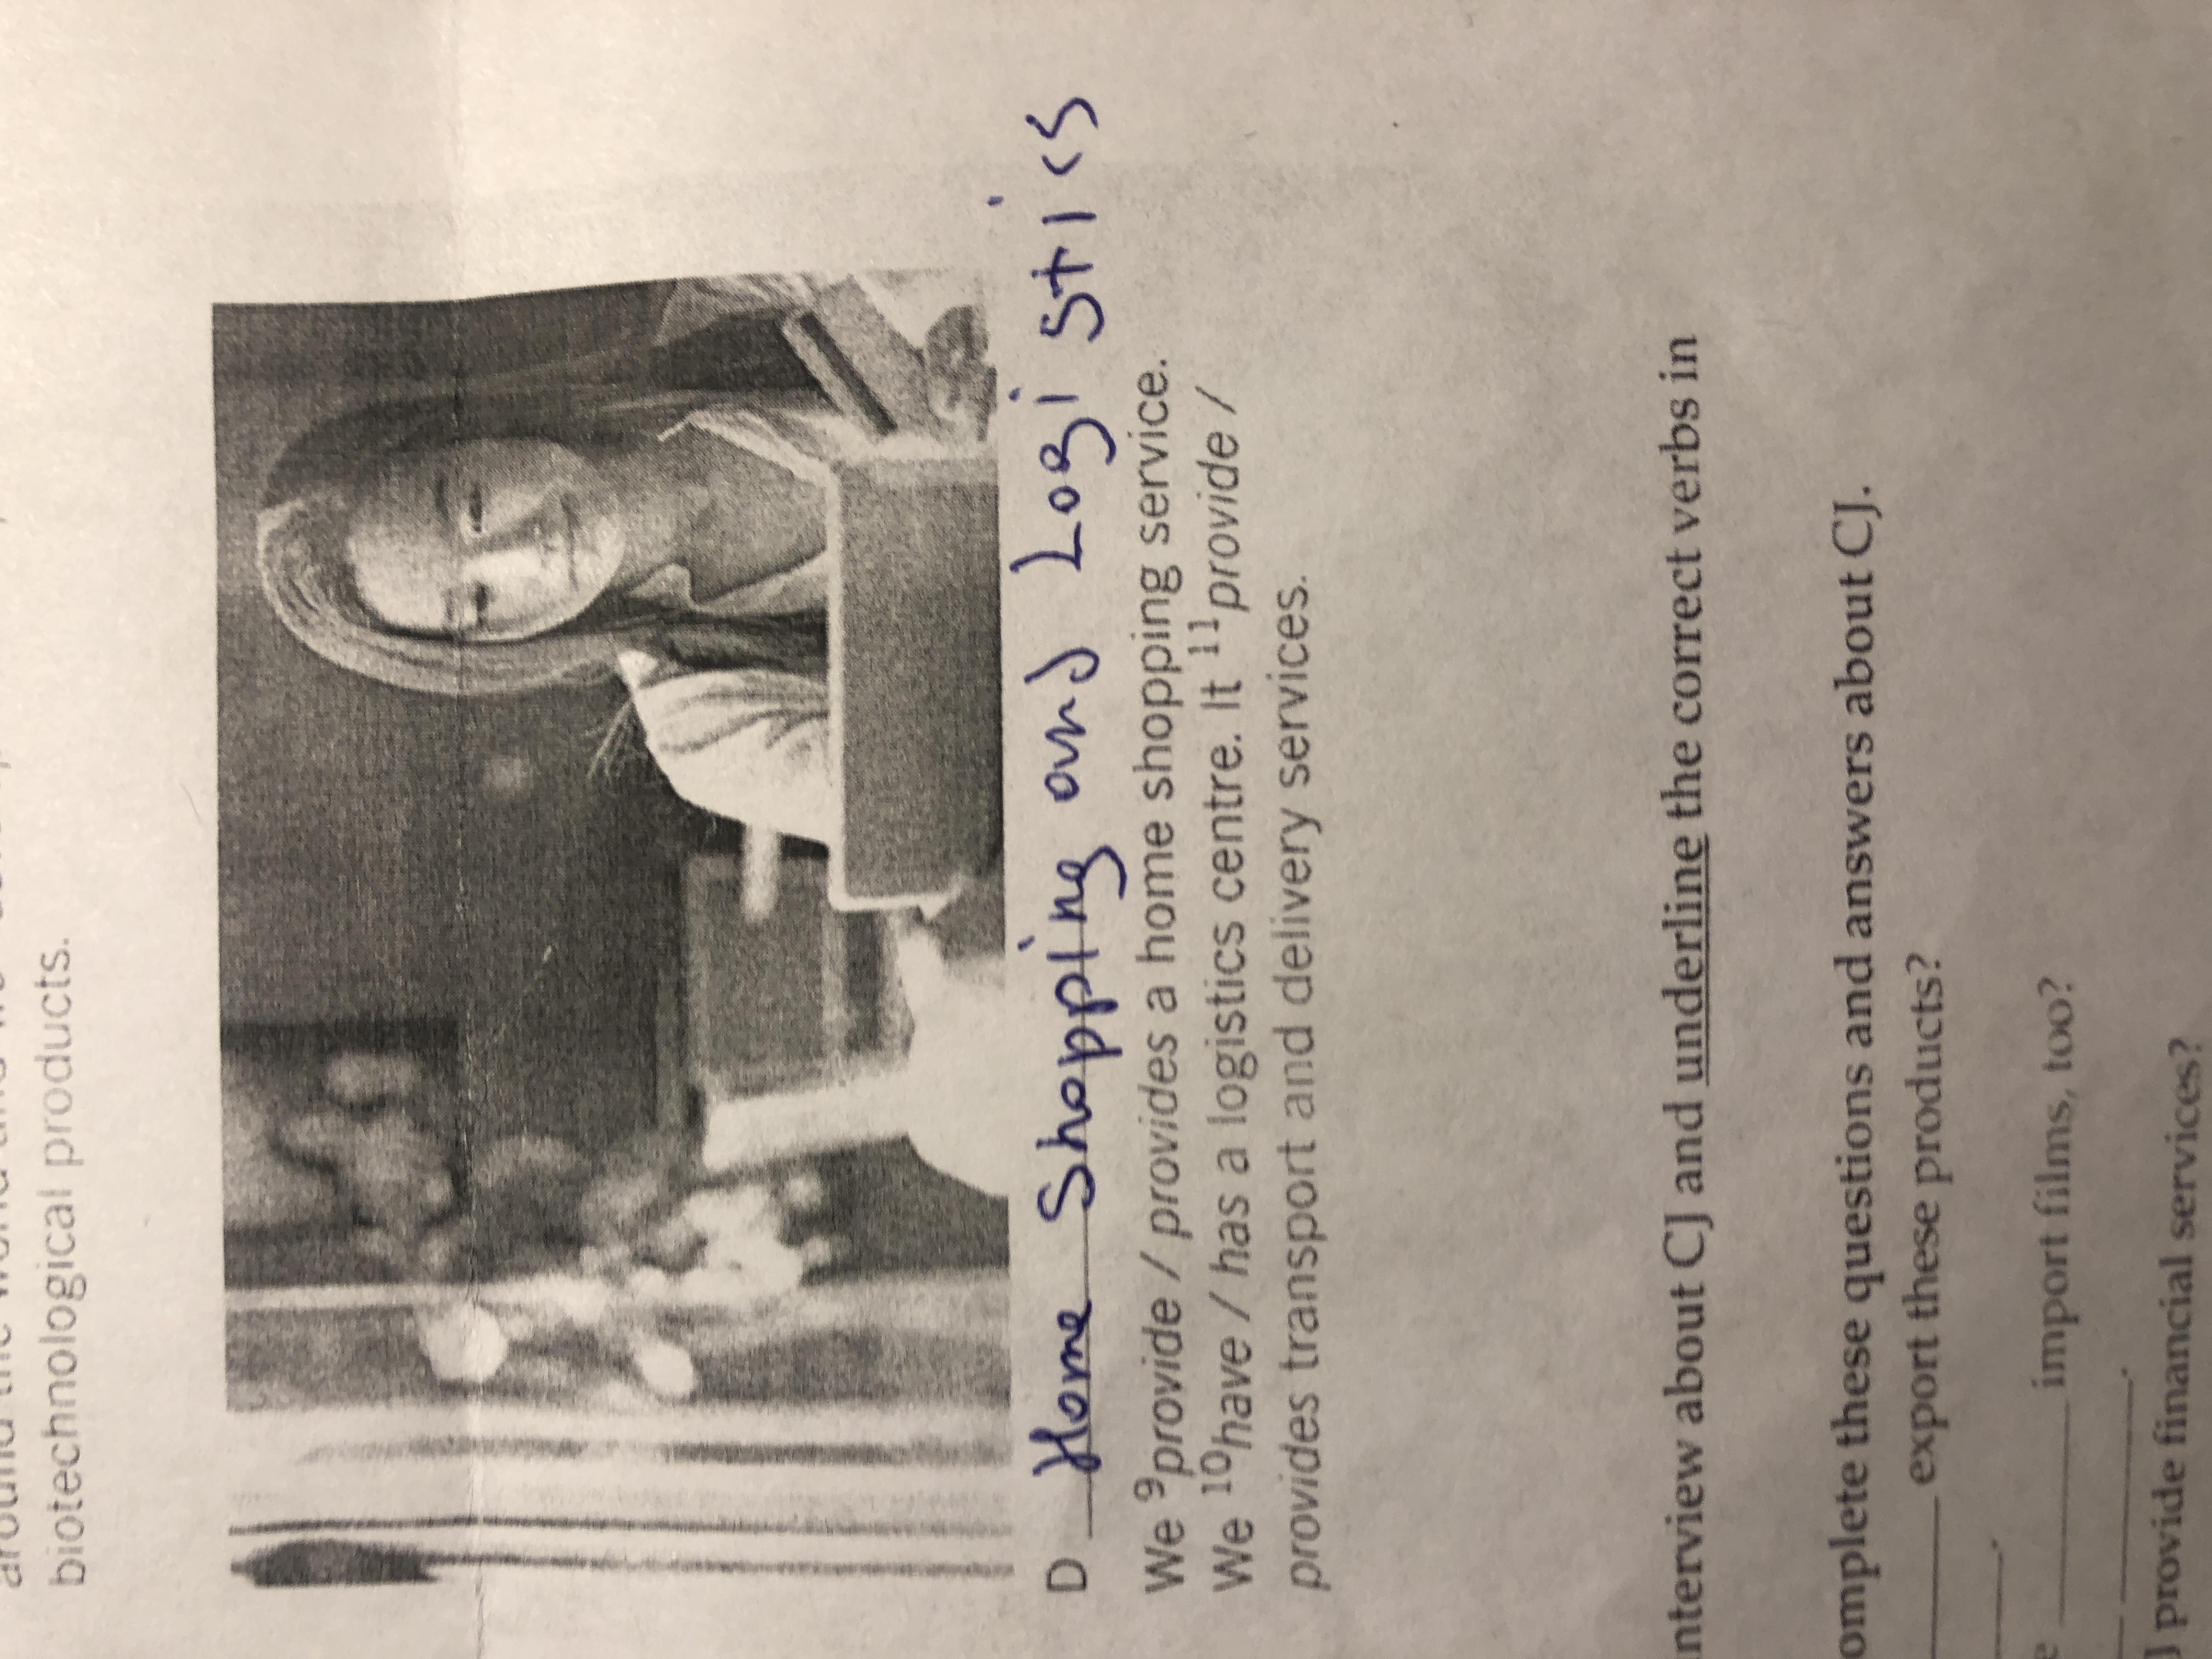 around the world and
biotechnological products.
D Home Shopping and Logistics
We 9provide / provides a home shopping service.
We 10have / has a logistics centre. It 11provide /
provides transport and delivery services.
nterview about CJ and underline the correct verbs in
omplete these questions and answers about CJ.
export these products?
import films, too?
J provide financial services?